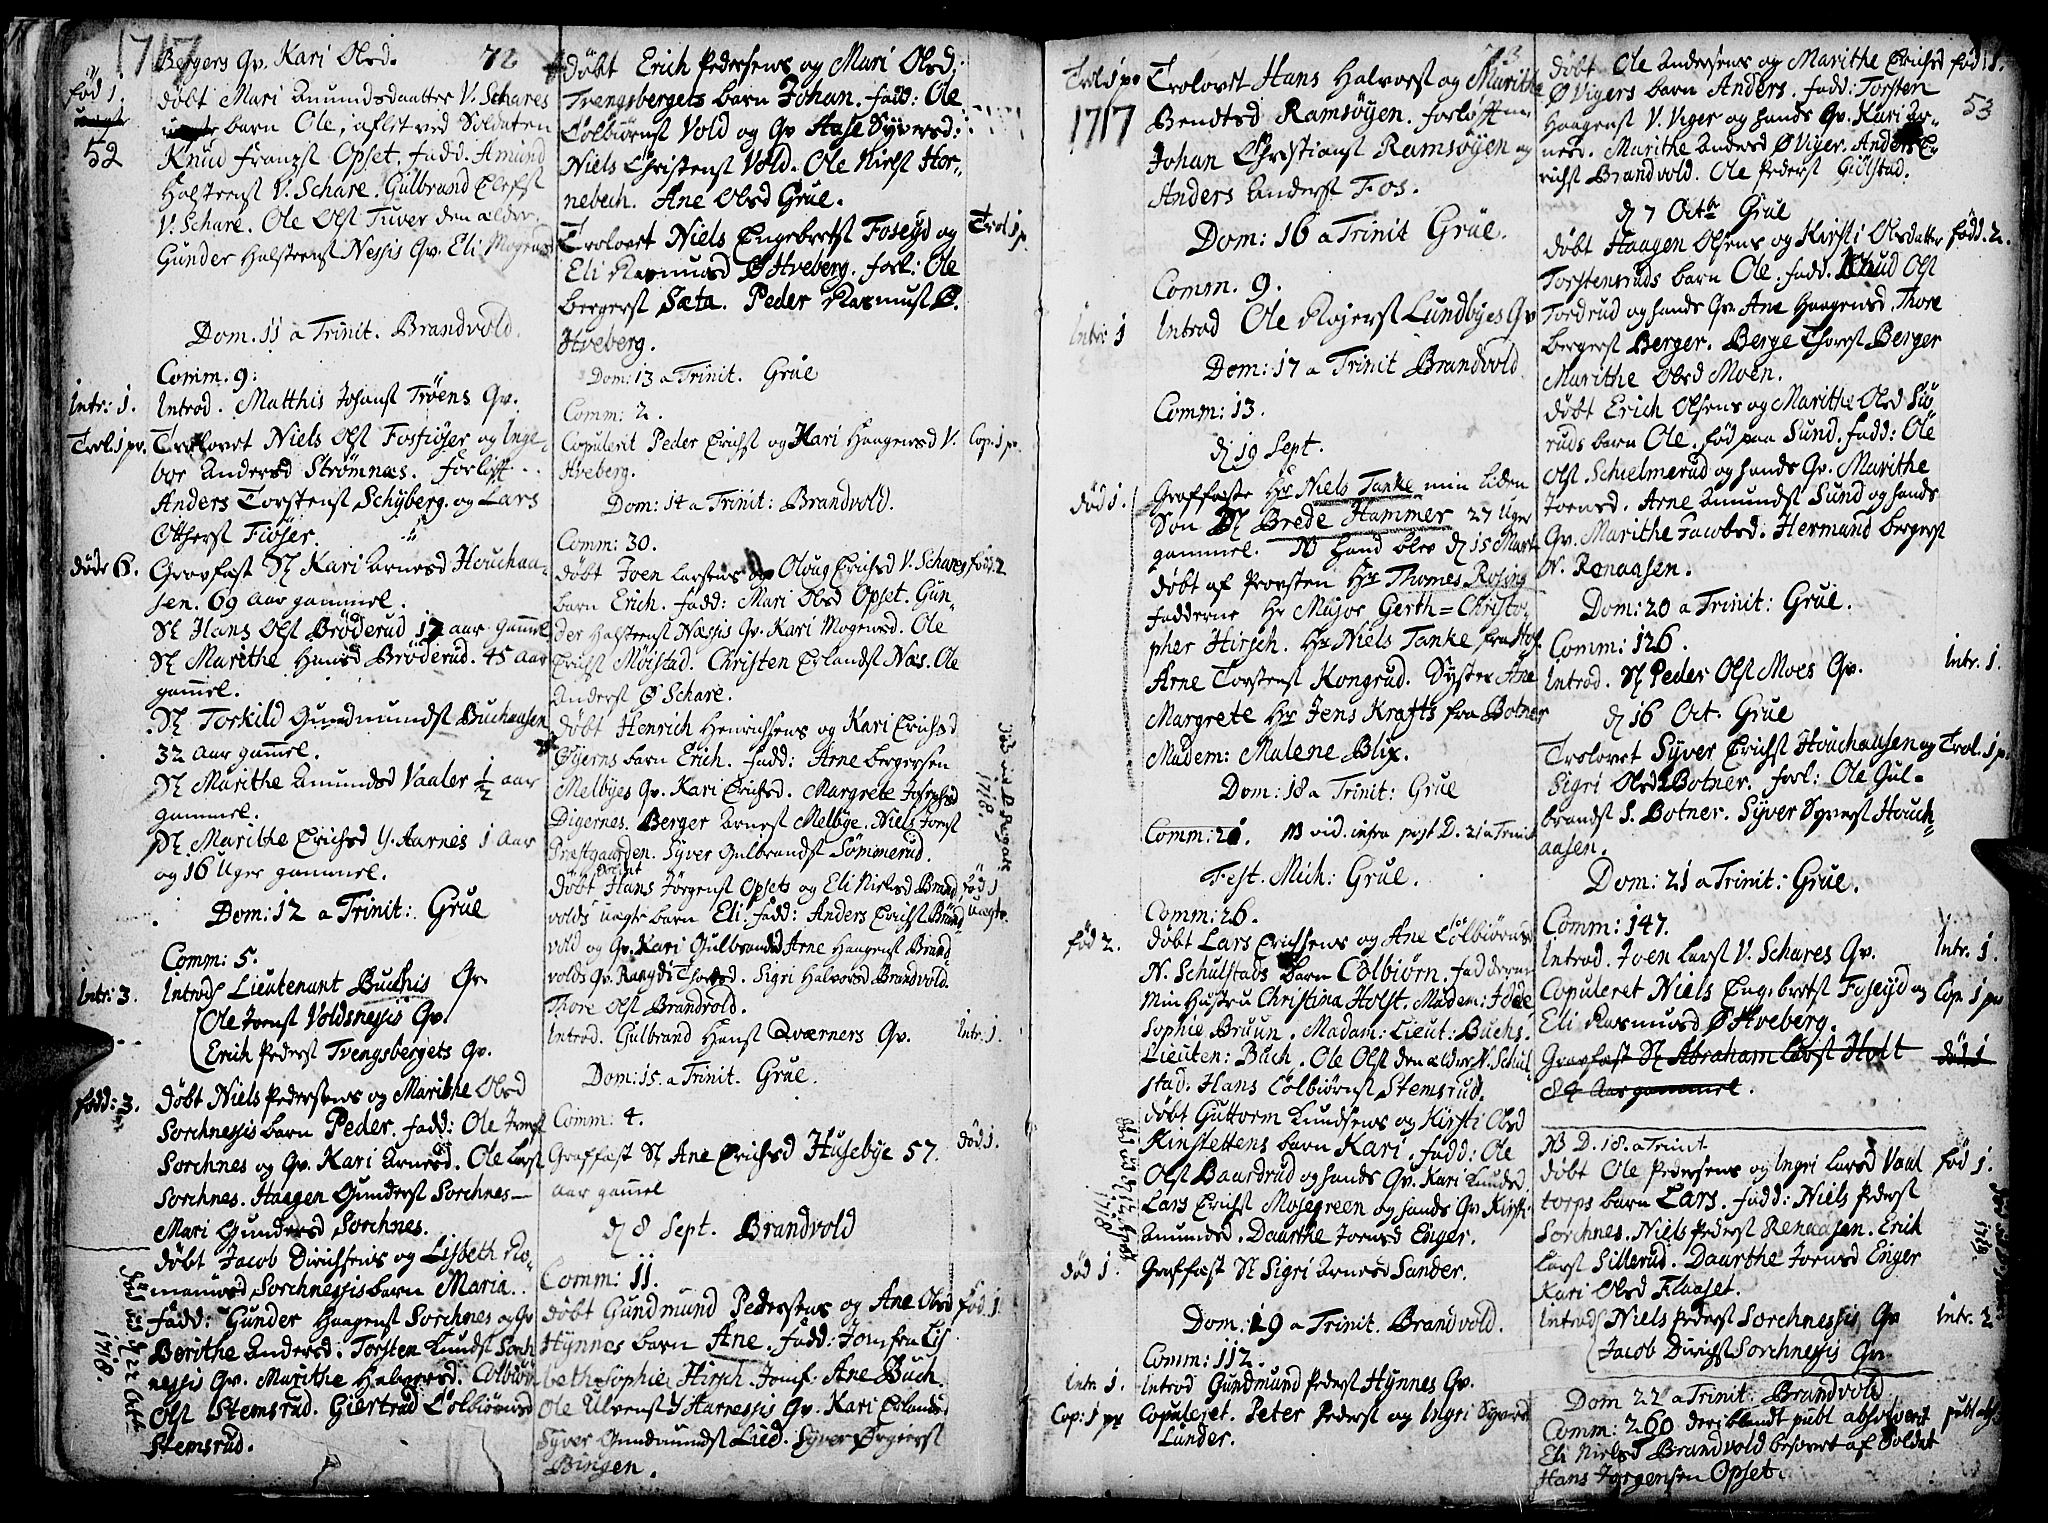 1717
72
Bergers Qv. Kari Olsd.
fød 1.
uægte
52
døbt Mari Amundsdaatter V. Schares
uægte barn Ole, aflet ved Soldaten
Knud Franzst Opset. fadd. Amund
Halstenst V. Schare. Gulbrand
V. Schare. Ole Olst Tuver den ælder.
Gunder Halstenst Nessis Qv. Eli Mogensd
Dom. 11 a Trinit. Brandvold.
Comm. 9:
Intr: 1.
Introd. Matthis Johanst Trøens Qv.
Trol. 1 pr.
Trolovet Niels Olst Fosfiøser og Inge-
bor Andersd Strømnæs. forlift
Anders Torstenst Schyberg. og Lars
Otherst Fiøser.
døde 6.
Gravfæst Sl Kari Arnesd Houchaa-
sen. 69 aar gammel.
Sl Hans Olst Brøderud 17 aar gammel
Sl Marithe Hansd Brøderud. 45 aar
gammel.
Sl Torkild Gundmundst Buchaasen
32 aar gammel.
Sl Marithe Amundsd Vaaler 1/2 aar
gammel.
Sl Marithe Erichsd Y. Aarnes 1 aar
og 16 Uger gammel.
Dom: 12 a Trinit: Grue
Comm: 5.
Intr: 3.
Introd Lieutenant Buchis Qv.
Ole Jornst Voldsnessis Qv.
Erich Pederst Tvengsbergets Qv.
fødd: 3.
Døbt Niels Pedersens og Marithe Olsd
Sorchnessis barn Peder. fadd: Ole Jornst
Sorchnes og Qv. Kari Arnesd. Ole Larst
Sorchnes. Haagen Gunderst Sorchnes—
Mari Gundersd Sorchnes.
døbt Jacob Dirichsens og Lisbeth Ro-
mansd Sorchnessis barn Maria.
fadd: Gunder Haagenst Sorchnes og Qv
Berithe Andersd. Torsten Knudst Sorch-
nessis Qv. Marithe Helgersd. Colbiørn
Olst Stemsrud. Giertrud Colbiørnsd
Stemsrud.
1718.
døbt Erich Pedersens og Mari Olsd
Tvengsbergets barn Johan. fadd: Ole
Colbiørnst Vold og Qv Aase Syversd:
Niels Christenst Vold. Ole Nielst Hor-
nebech. Ane Olsd Grue.
Trol 1 p.
Trolovet Niels Engebretst Foseyd og
Eli Rasmusd Ø Hveberg. forl: Ole
bergerst Sæta. Peder Rasmust Ø.
Hveberg.
Dom: 13 a Trinit. Grue
Comm: 2.
Copulerit Peder Erichst og Kari Haagensd V.
Hveberg.
Cop: 1 p.
Dom: 14 a Trinit: Brandvold.
Comm: 30.
fød. 2
døbt Joen Larsens og Oloug Erichsd V. Schares
barn Erich. fadd: Mari Olsd Opset. Gun-
der Halstenst Næssis Qv. Kari Mogensd. Ole
Erichst Møistad. Christen Erlandst Næs. Ole
Anderst Ø Schare.
døbt Henrich Henrichsens og Kari Erichsd
Øyerns barn Erich. fadd: Arne bergersen
Melbyes Qv. Kari Erichsd. Margrete Josephsd
Digernes. Berger Arnest Melbye. Niels Jornst
Præstgaarden. Syver Gulbrandst Sømmerud.
1718.
fød 1
uægte.
døbt Hans Jørgenst Opsets og Eli Nielsd Brand-
volds uægte barn Eli. fadd: Anders Erichst Brand-
vold og Qv. Kari Gulbrandsd Arne Haagenst Brand-
volds Qv. Rangdi Thoresd. Sigri Halvorsd Brandvold.
Thore Olst Brandvold.
Introd. Gulbrand Hanst Qværners Qv.
Intr: 1.
Dom: 15. a Trinit. Grue.
Comm: 4.
Graffæst Sl Ane Erichsd Husebye 57.
aar gammel
død 1.
d 8 Sept. Brandvold
Comm: 11.
fød. 1.
døbt Gundmund Pedersens og Ane Olsd
Hynnes barn Ane. fadd: Jomfru Lis-
beth Sophie Hirsch. Jomf. Ane Buch.
Ole Ulvenst Y Harnessis Qv. Kari Erlandsd
Syver Gundmundst Lied. Syver
Bingen.
73
Trol 1 pr
1717
Trolovet Hans Halvorst og Marithe
Bendtsd Ramsøyen. forløftm
Johan Christianst Ramsøyen og
Anders Anderst Fos.
Dom: 16 a Trinit Grue.
Comm. 9.
Intr: 1
Introd Ole Rojerst Lundbyes Qv
Dom: 17 a Trinit Brandvold
Comm: 13.
d 19 Sept.
død 1.
Graffæste Hr Niels Tanke min liden
Søn Sl Brede Hammer 27 Uger
gammel. NB hand blev d 15 Mart
døbt af Provsten Hr Thomes Rosing
fadderne Hr Major Gerth=Christo-
pher Hirsch. Hr Niels Tanke fra Hof.
Arne Torstenst Kongrud. Syster Ane
Margrete Hr Jens Krafts fra Botner
Madem: Malene Blix.
Dom: 18 a Trinit: Grue
Comm: 21. NB vid. infra post D. 21 a Trinit
Fest. Mich: Grue.
Comm: 26.
fød 2.
døbt Lars Erichsens og Ane Colbiørns
N. Schulstads barn Colbiørn. fadderne
Min Hustru Christina Holst. Madem:
Sophie Bruun. Madam: Lieut: Buchs.
Lieuten: Buch. Ole Olst den ælder N. Schul-
stad. Hans Colbiørnst Stemsrud.
døbt Guttorm Knudsens og Kirsti Olsd
Rinstettens barn Kari. fadd: Ole
Olst Baardrud og hands Qv. Kari Knudsd
Lars Erichst Mosegreen og hands Qv Kirsti
Amundsd. Daarthe Jornsd Enger.
1718
død 1.
Graffæst Sl Sigri Arnesd Sander.
Dom: 19 a Trinit. Brandvold.
Comm: 112.
Intr. 1.
Introd Gundmund Pederst Hynnes Qv.
Cop: 1 pr
Copuleret. Peter Pederst og Ingri Syversd
Lunder.
døbt Ole Andersens og Marithe Erichsd
fød 1.
53
Ø Vigers barn Anders. fadd: Torsten
Haagenst V. Viger og hands Qv. Kari Ar-
nesd. Marithe Andersd Ø Viger. Anders E-
richst Brandvold. Ole Pederst Giølstad.
d 7 Octbr Grue
fødd. 2.
døbt Haagen Olsens og Kirsti Olsdatter
Torstensruds barn Ole. fadd. Knud Olst
Tordrud og hands Qv. Ane Haagensd. Thore
bergerst Berger. Berge Thorest Berger
Marithe Olsd Moen.
døbt Erich Olsens og Marithe Olsd Su-
ruds barn Ole. fød paa Sund. fadd: Ole
Olst Schielmerud og hands Qv. Marithe
Joensd. Arne Amundst Sund og hands
Qv. Marithe Jacobsd. Hermand bergerst
N. Renaasen.
Dom: 20 a Trinit: Grue.
Comm: 126.
Intr. 1.
Introd. Sl Peder Olst Moes Qv.
d 16 Oct. Grue
Trolovet Syver Erichst Houchaasen og
Trol. 1 p.
Sigri Olsd Botner. forl: Ole Gul-
brandst S. Botner. Syver Syverst Houch-
aasen.
Dom: 21 a Trinit: Grue.
Comm: 147.
Introd. Joen Larst V. Schares Qv.
Intr. 1.
Copuleret Niels Engebretst Foseyd og
Cop. 1 pr
Eli Rasmusd Ø Hveberg.
Gravfæst Sl Abraham Larst Holt
død 1
84 Aar gammel.
NB D. 18. a Trinit.
døbt Ole Pedersens og Ingri Larsd Vaal
fød 1.
torps barn Lars. fadd: Niels Pederst
Sorchnes. Niels Pederst Renaasen. Erik
Larst Sillerud. Daarthe Jornsd Enger
Kari Olsd Flaaset.
Introd Niels Pederst Sorchnessis Qv
Intr. 2
Jacob Dirichst Sorchnessis Qv.
Dom 22 a Trinit. Brandvold
Comm: 260 deriblandt publ absolverit
publ abs
Eli Nielsd Brandvold besovet af Soldat
Hans Jørgensen Opset.